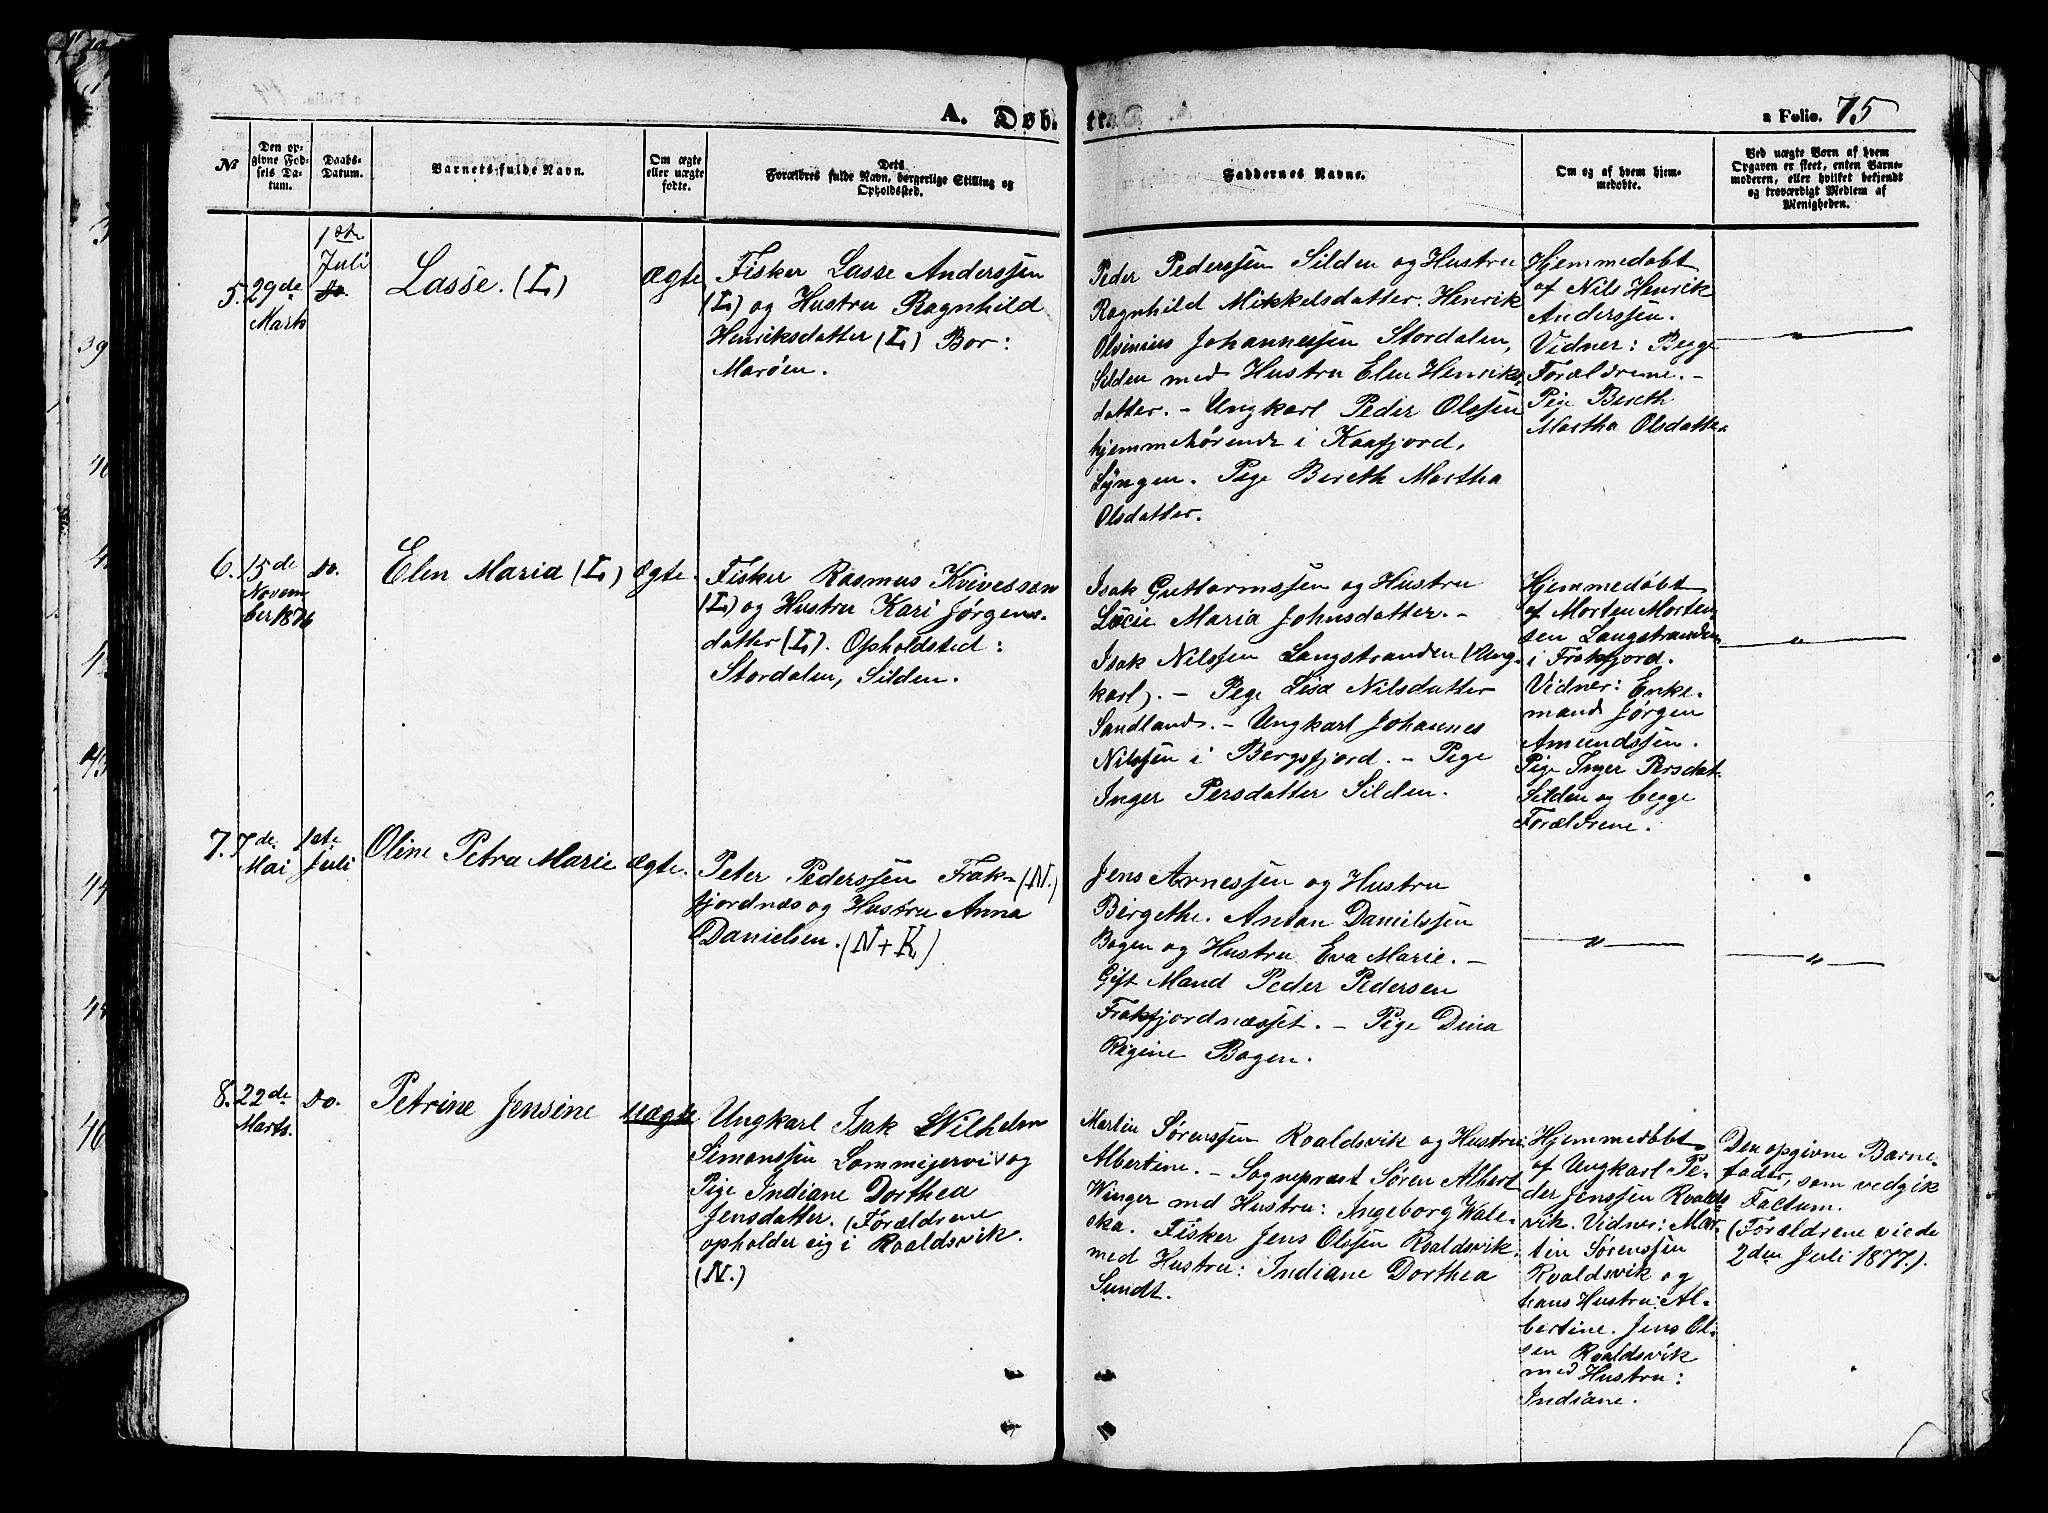 A. Døbte.
a Folio. 75
No
Den opgivne Fødsels Datum.
Daabs-Datum.
Barnets fulde Navn.
Om ægte eller uægte fødte.
Dets Forældres fulde Navn, borgerlige Stilling og Opholdssted.
Faddernes Navne.
Om og af hvem hjemmedøbte.
Ved uægte Børn af hvem Opgaven er skeet, enten Barnemoderen, eller hvilket bekjendt og troværdigt Medlem af Menigheden.
5.
29de
Marts
1ste
Juli
Do.
Lasse. (L)
Ægte
Fisker Lasse Anderssen
(L) og Hustru Ragnhild
Henriksdatter (L) Bor:
Marøen.
Peder Pederssen Silden og Hustru
Ragnhild Mikkelsdatter. Henrik
Olvinius Johannessen Stordalen,
Silden med Hustru Elen Henriks-
datter. - Ungkarl Peder Olssen
hjemmehørende i Kaafjord,
Lyngen. Pige Bereth Martha
Olsdatter.
Hjemmedøbt
af Nils Henrik
Anderssen.
Vidner: Begge
Forældrene. -
Pige Bereth
Martha Olsdatter
"
6.
15de
Novem
ber 1876
Do.
Elen Maria (L)
Ægte.
Fisker Rasmus Kvivessen
(L) og Hustru Kari Jørgens-
datter (L). Opholdsted:
Stordalen, Silden.
Isak Guttormssen og Hustru
Lucie Maria Johnsdatter. -
Isak Nilssen Langstranden (Ung-
karl). - Pige Lisa Nilsdatter
Sandland. - Ungkarl Johannes
Nilssen i Bergsfjord. - Pige
Inger Persdatter Silden.
Hjemmedøbt
af Morten Morten-
sen Langstranden
i Frakfjord.
Vidner: Enke-
mand Jørgen
Amundssen.
Pige Inger Persdat.
Silden og begge
Forældrene.
"
7.
7de
Mai
1ste
Juli
Oline Petra Marie
Ægte.
Peter Pederssen Frak- (N.)
fjordnæs og Hustru Anna
Danielsen. (N+K)
Jens Arnessen og Hustru
Birgethe. Anton Danielssen
Bogen og Hustru Eva Marie. -
Gift Mand Peder Pedersen
Frakfjordnæsset. - Pige Dina
Regine Bogen.
"
"
8.
22de
Marts.
Do.
Petrine Jensine
Uægte
Ungkarl Isak Wilhelm
Simonssen Lommijervi og
Pige Indiane Dorthea
Jensdatter. (Forældrene
opholder sig i Roaldsvik.
(N.)
Martin Sørenssen Roaldsvik og Hustru
Albertine. - Sognepræst Søren Albert
Winger med Hustru: Ingeborg Wale-
ska. Fisker Jens Olssen Roaldsvik
med Hustru: Indiane Dorthea
Sundt.
Hjemmedøbt
af Ungkarl Pe-
der Jenssen Roalds-
vik. Vidner: Mar-
tin Sørenssen
Roaldsvik og
hans Hustru Al-
bertine. Jens Ol-
sen Roaldsvik
med Hustru:
Indiane.
Den opgivne Barne-
fader, som vedgik
Factum.
(Forældrene viede
2den Juli 1877.).